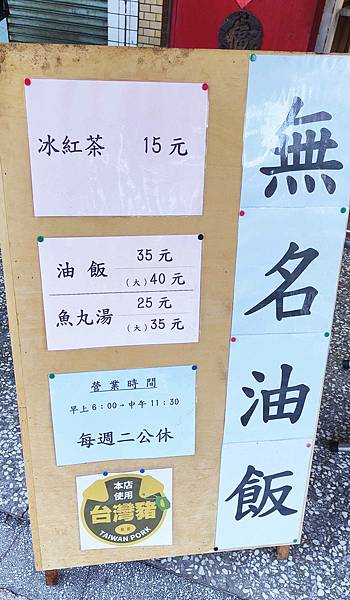 無名油飯
冰紅茶 15元
油飯 35元
(大)40元
魚丸湯 25元
(大)35元
營業時間
早上6:00→中午11:30
每週二公休
本店
使用
台灣豬
TAIWAN PORK